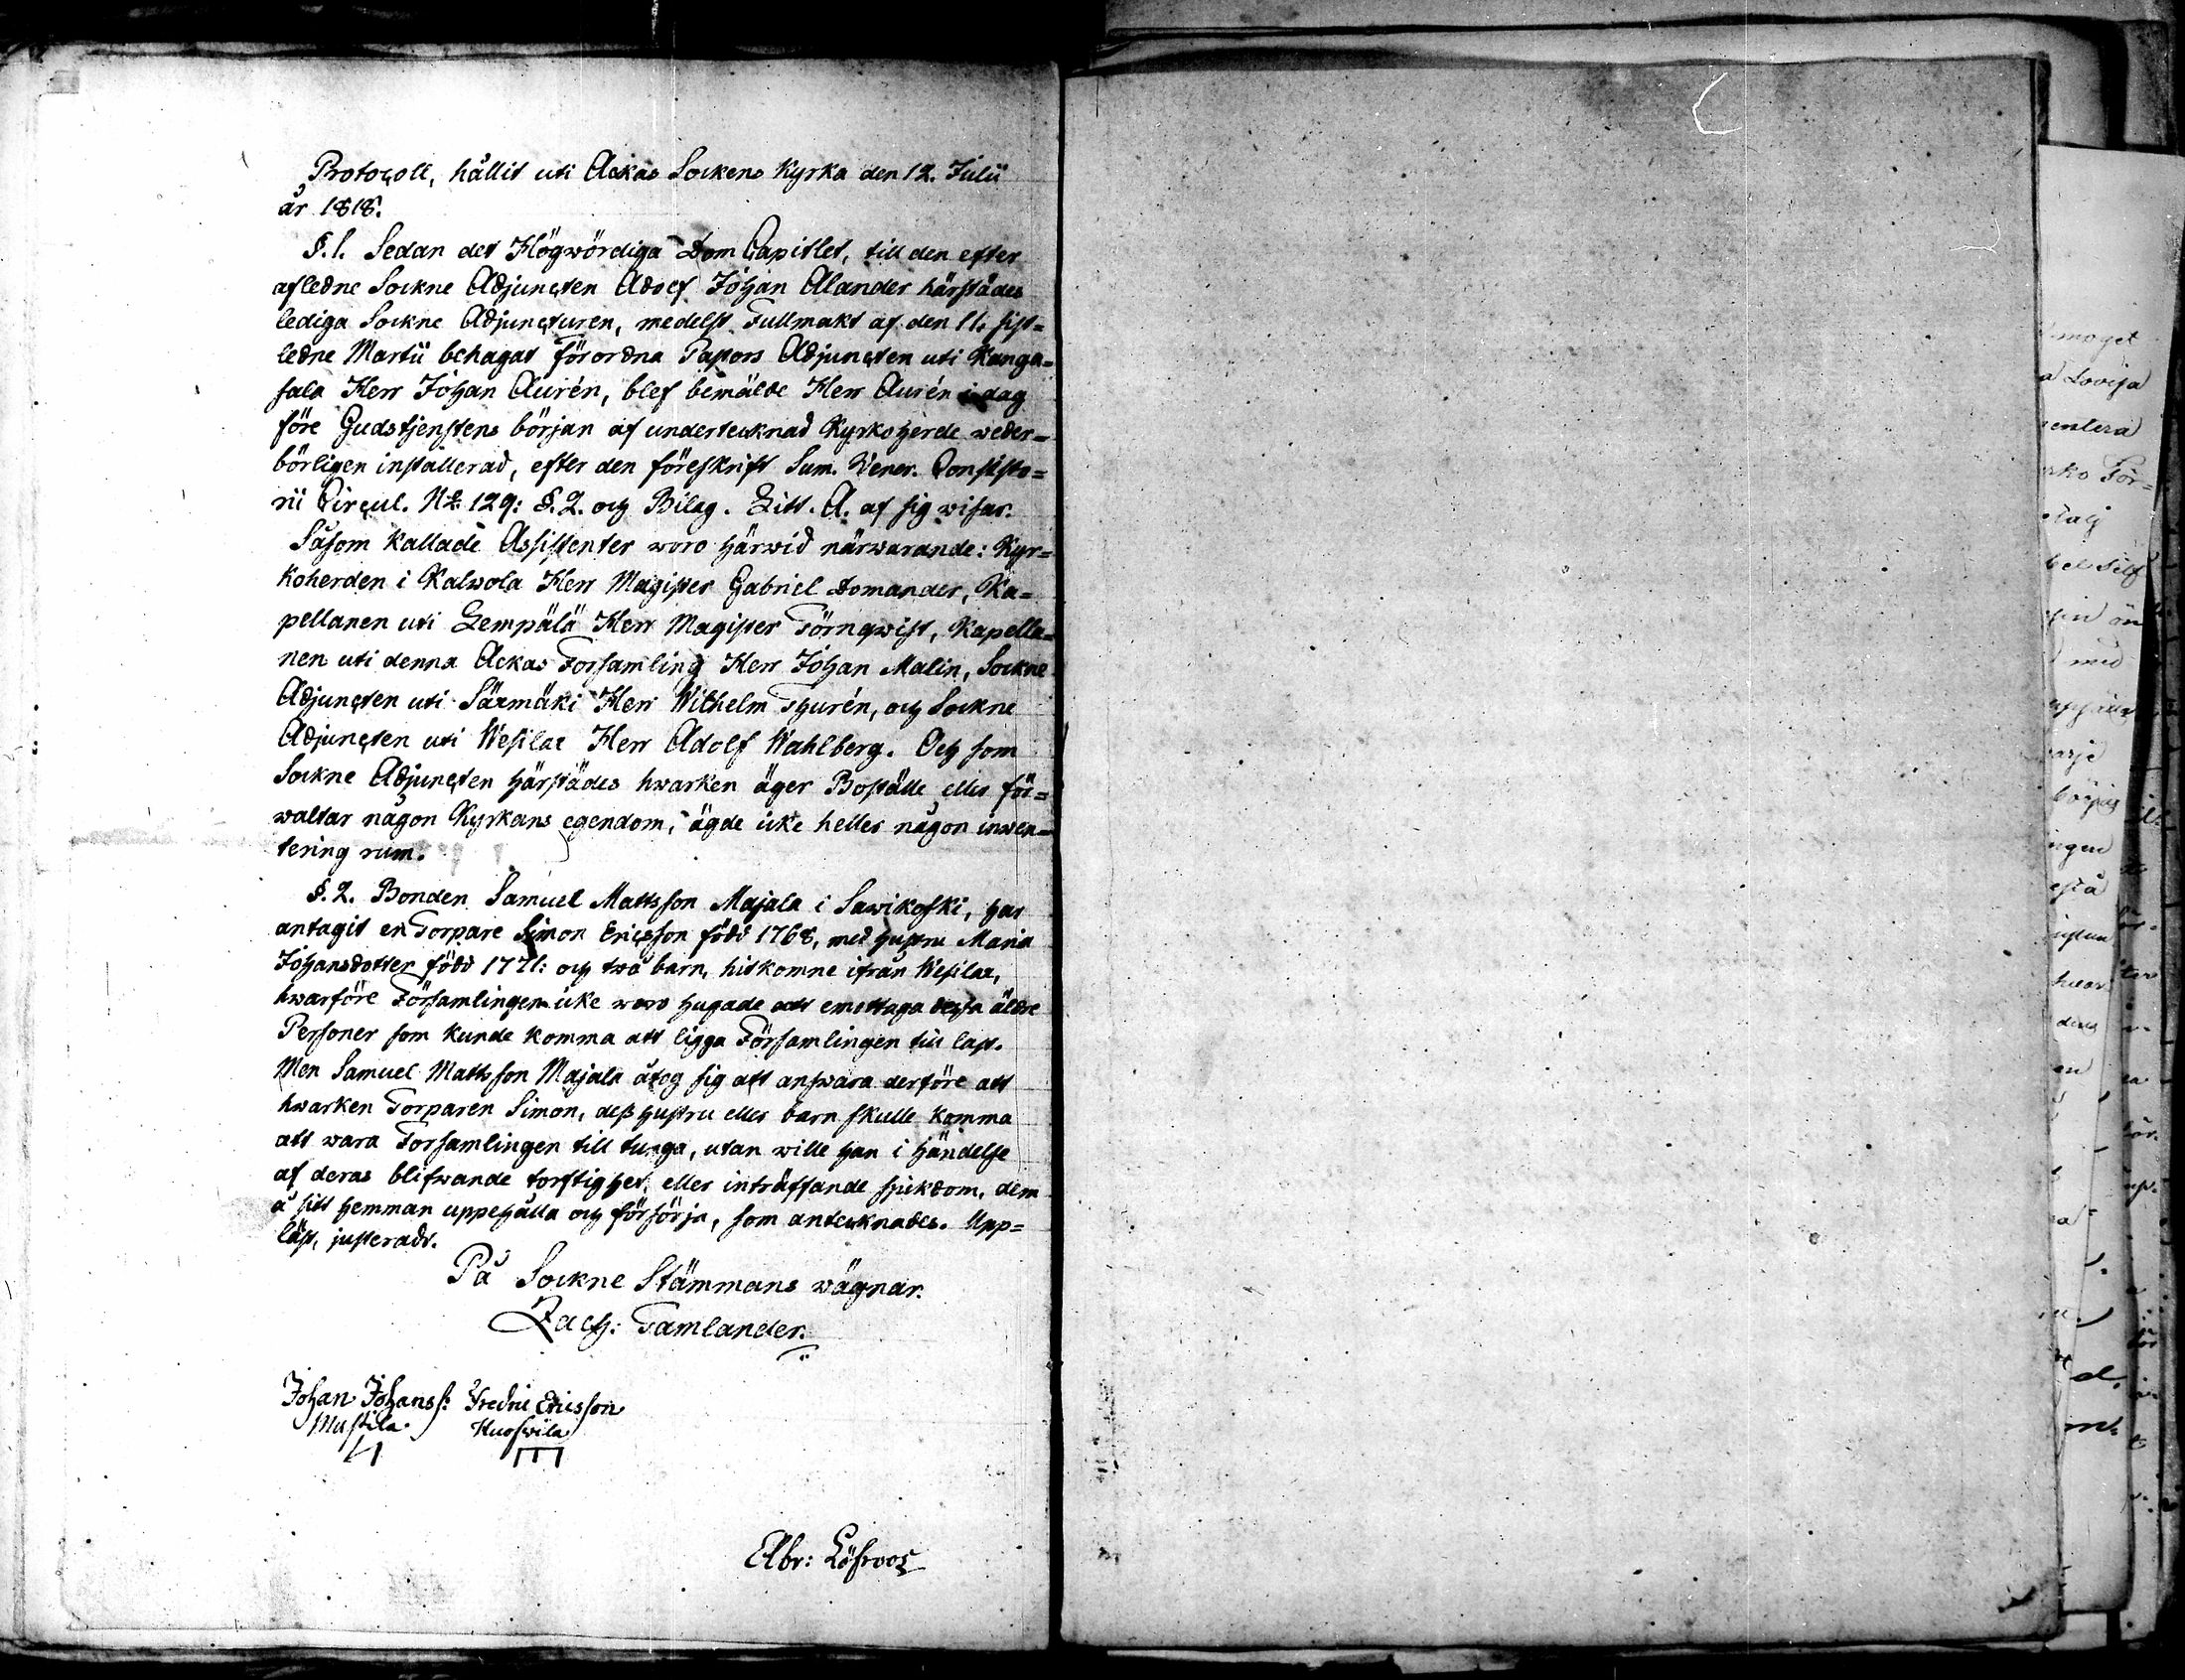 Protocoll, hållit uti Ackas Sockens Kyrka den 12. Julii
år 1818.
§. 1. Sedan det Högwördiga Dom Capitlet, till den efter
afledne Sockne Adjuncten Adolf Johan Alander härstädes
lediga Sockne Adjuncturen, medelst Fullmakt af den 11. sist=
ledne Martii behagat förordna Pastors Adjuncten uti Kanga=
sala Herr Johan Aurén, blef bemälde Herr Aurén i dag
före Gudstjenstens början af undertecknad Kyrkoherde weder=
börligen installerad, efter den föreskrift Sum. Vener. Consisto=
rii Circul. No 129: §. 2. och Bilag. Litt. A. af sig wisar.
Såsom kallade Assistenter woro härwid närwarande: Kyr=
koherden i Kalwola Herr Magister Gabriel Domander, Ka=
pellanen uti Lempälä Herr Magister Törnqwist, Kapella=
nen uti denna Ackas Forsamling Herr Johan Malin, Sockne
Adjuncten uti Säxmäki Herr Wilhelm Thurén, och Sockne
Adjuncten uti Wesilax Herr Adolf Wahlberg. Och som
Sockne Adjuncten härstädes hwarken äger Boställe eller för=
waltar någon Kyrkans egendom, ägde icke heller någon inwen=
tering rum.
§. 2. Bonden Samuel Mattsson Majala i Sawikoski, har
antagit en Torpare Simon Ericsson född 1768, med hustru Maria
Johansdotter född 1771: och twå barn, hitkomne ifrån Wesilax,
hwarföre Församlingen icke woro hugade att emottaga dessa äldre
Personer som kunde komma att ligga Församlingen till last.
Men Samuel Mattsson Majala åtog sig att answara derföre att
hwarken Torparen Simon, dess hustru eller barn skulle komma
att wara Forsamlingen till tunga, utan wille han i händelse
af deras blifwande torftighet, eller inträffande sjukdom, dem
å sitt hemman uppehålla och försörja, som antecknades. Upp=
läst, justeradt.
På Sockne Stämmans wägnar.
Zach: Tamlander.
Johan Johanss: Fredric Ericsson
Mustila Huoswila
Abr: Löfroos